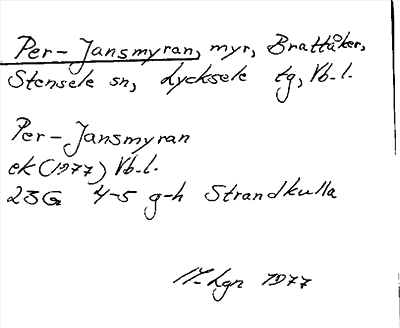 Per-Jansmyran, myr, Brattåker,
Stensele sn, Lycksele tg, Vb.l.
Per-Jansmyran
ek (1977) Vb.l.
23G 4-5 g-h Strandkulla
1977